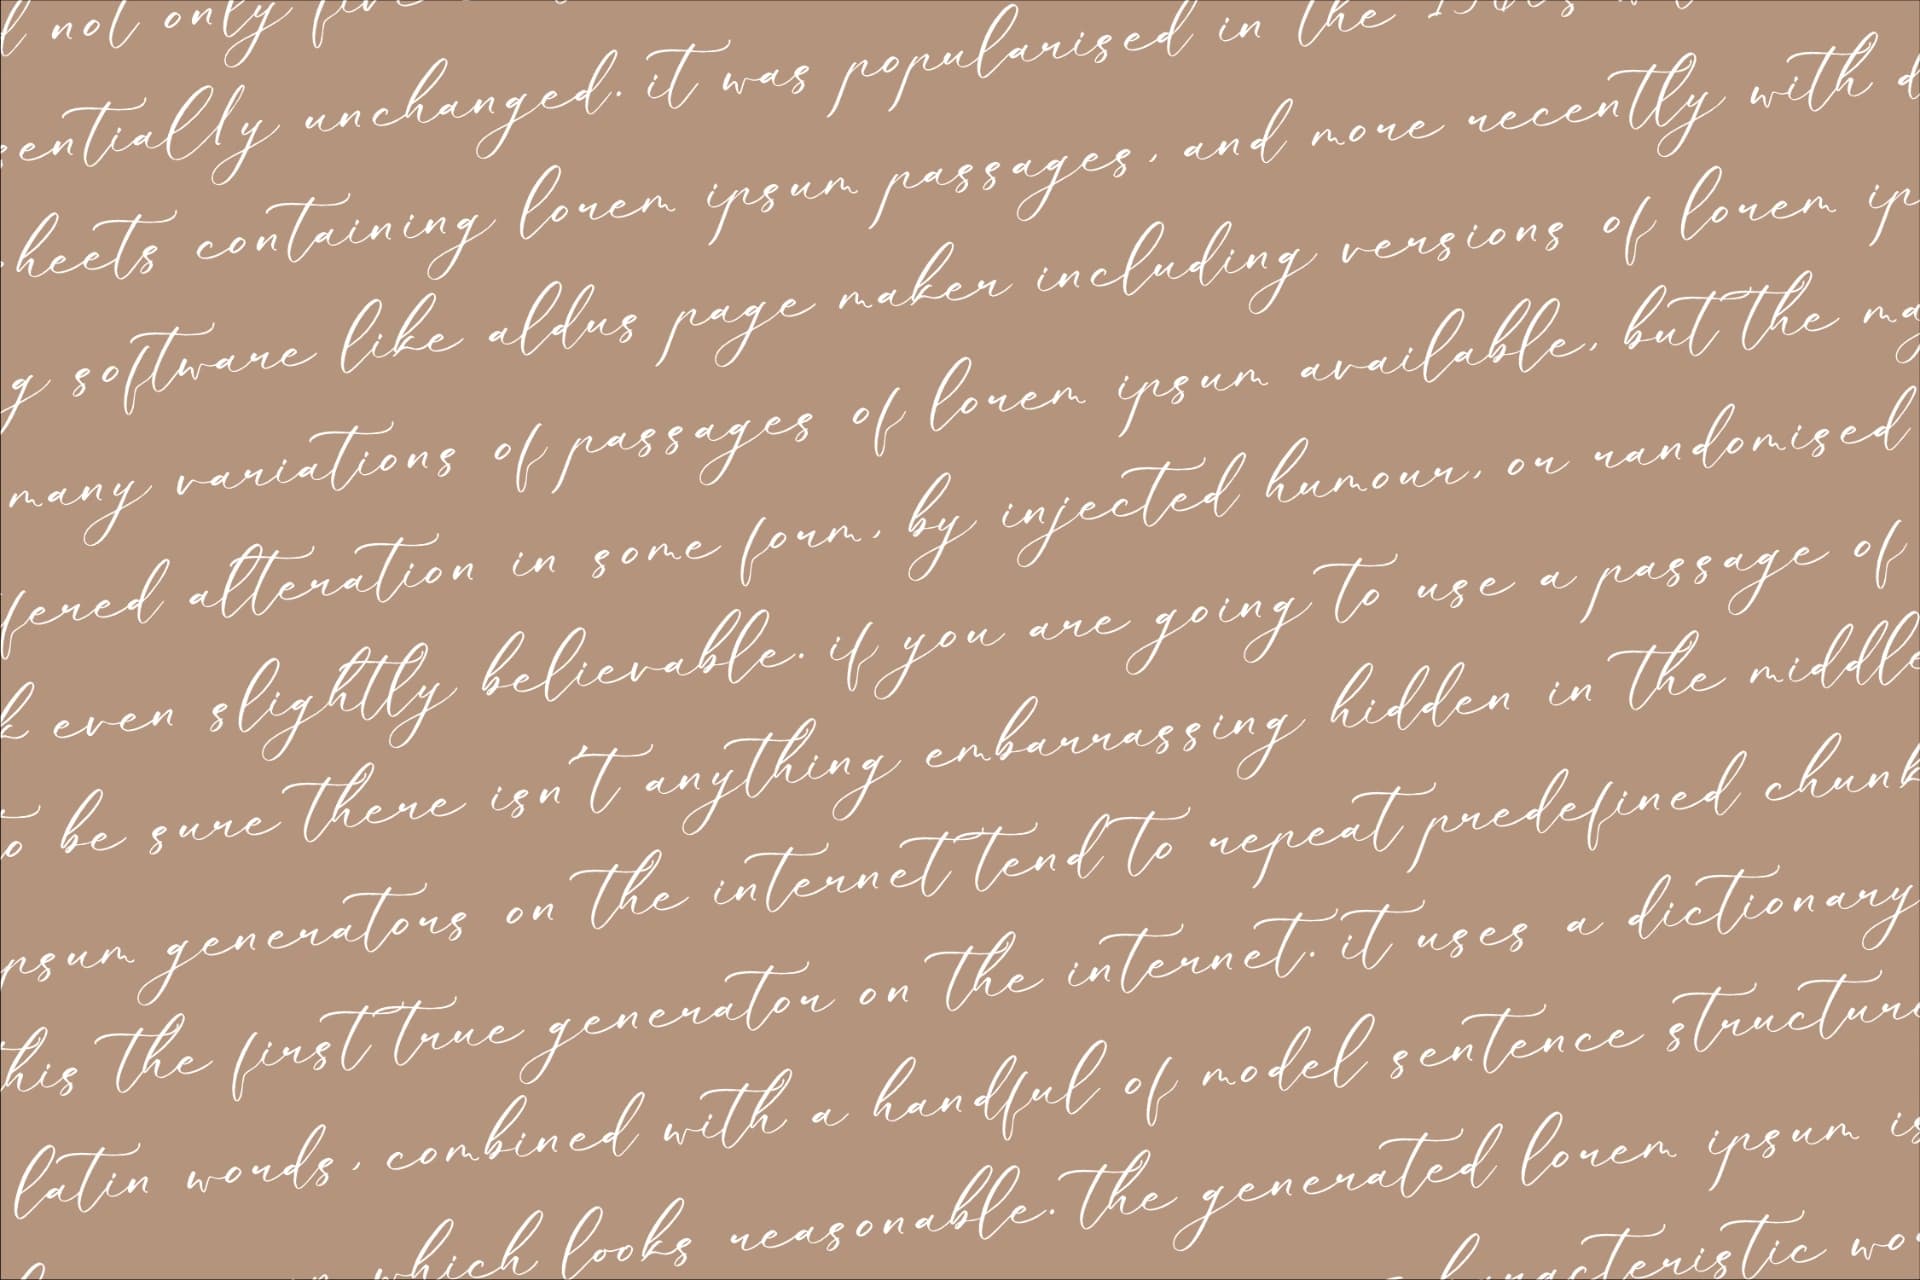 not only
entially unchanged. it was popularised in the
heets containing lorem ipsum passages, and more recently with d
g software like aldus page maker including versions of lorem ip
many variations of passages of lorem ipsum available, but the ma
fered alteration in some form, by injected humour, or randomised
k even slightly believable. if you are going to use a passage of
o be sure there isn't anything embarrassing hidden in the middle
psum generators on the internet tend to repeat predefined chunk
his the first true generator on the internet. it uses a dictionary
latin words, combined with a handful of model sentence structure
which looks reasonable. the generated lorem ipsum is
racteristic wo